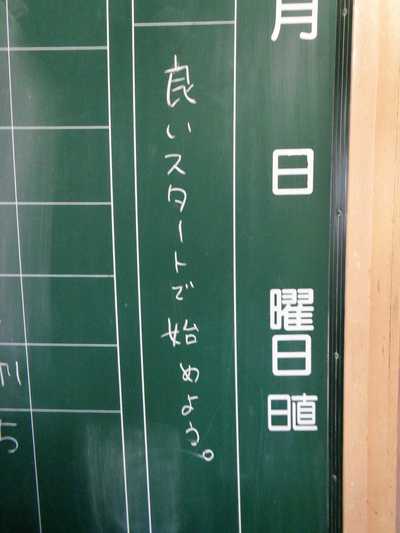 月 日 曜日 日直
良いスタートで始めよう。